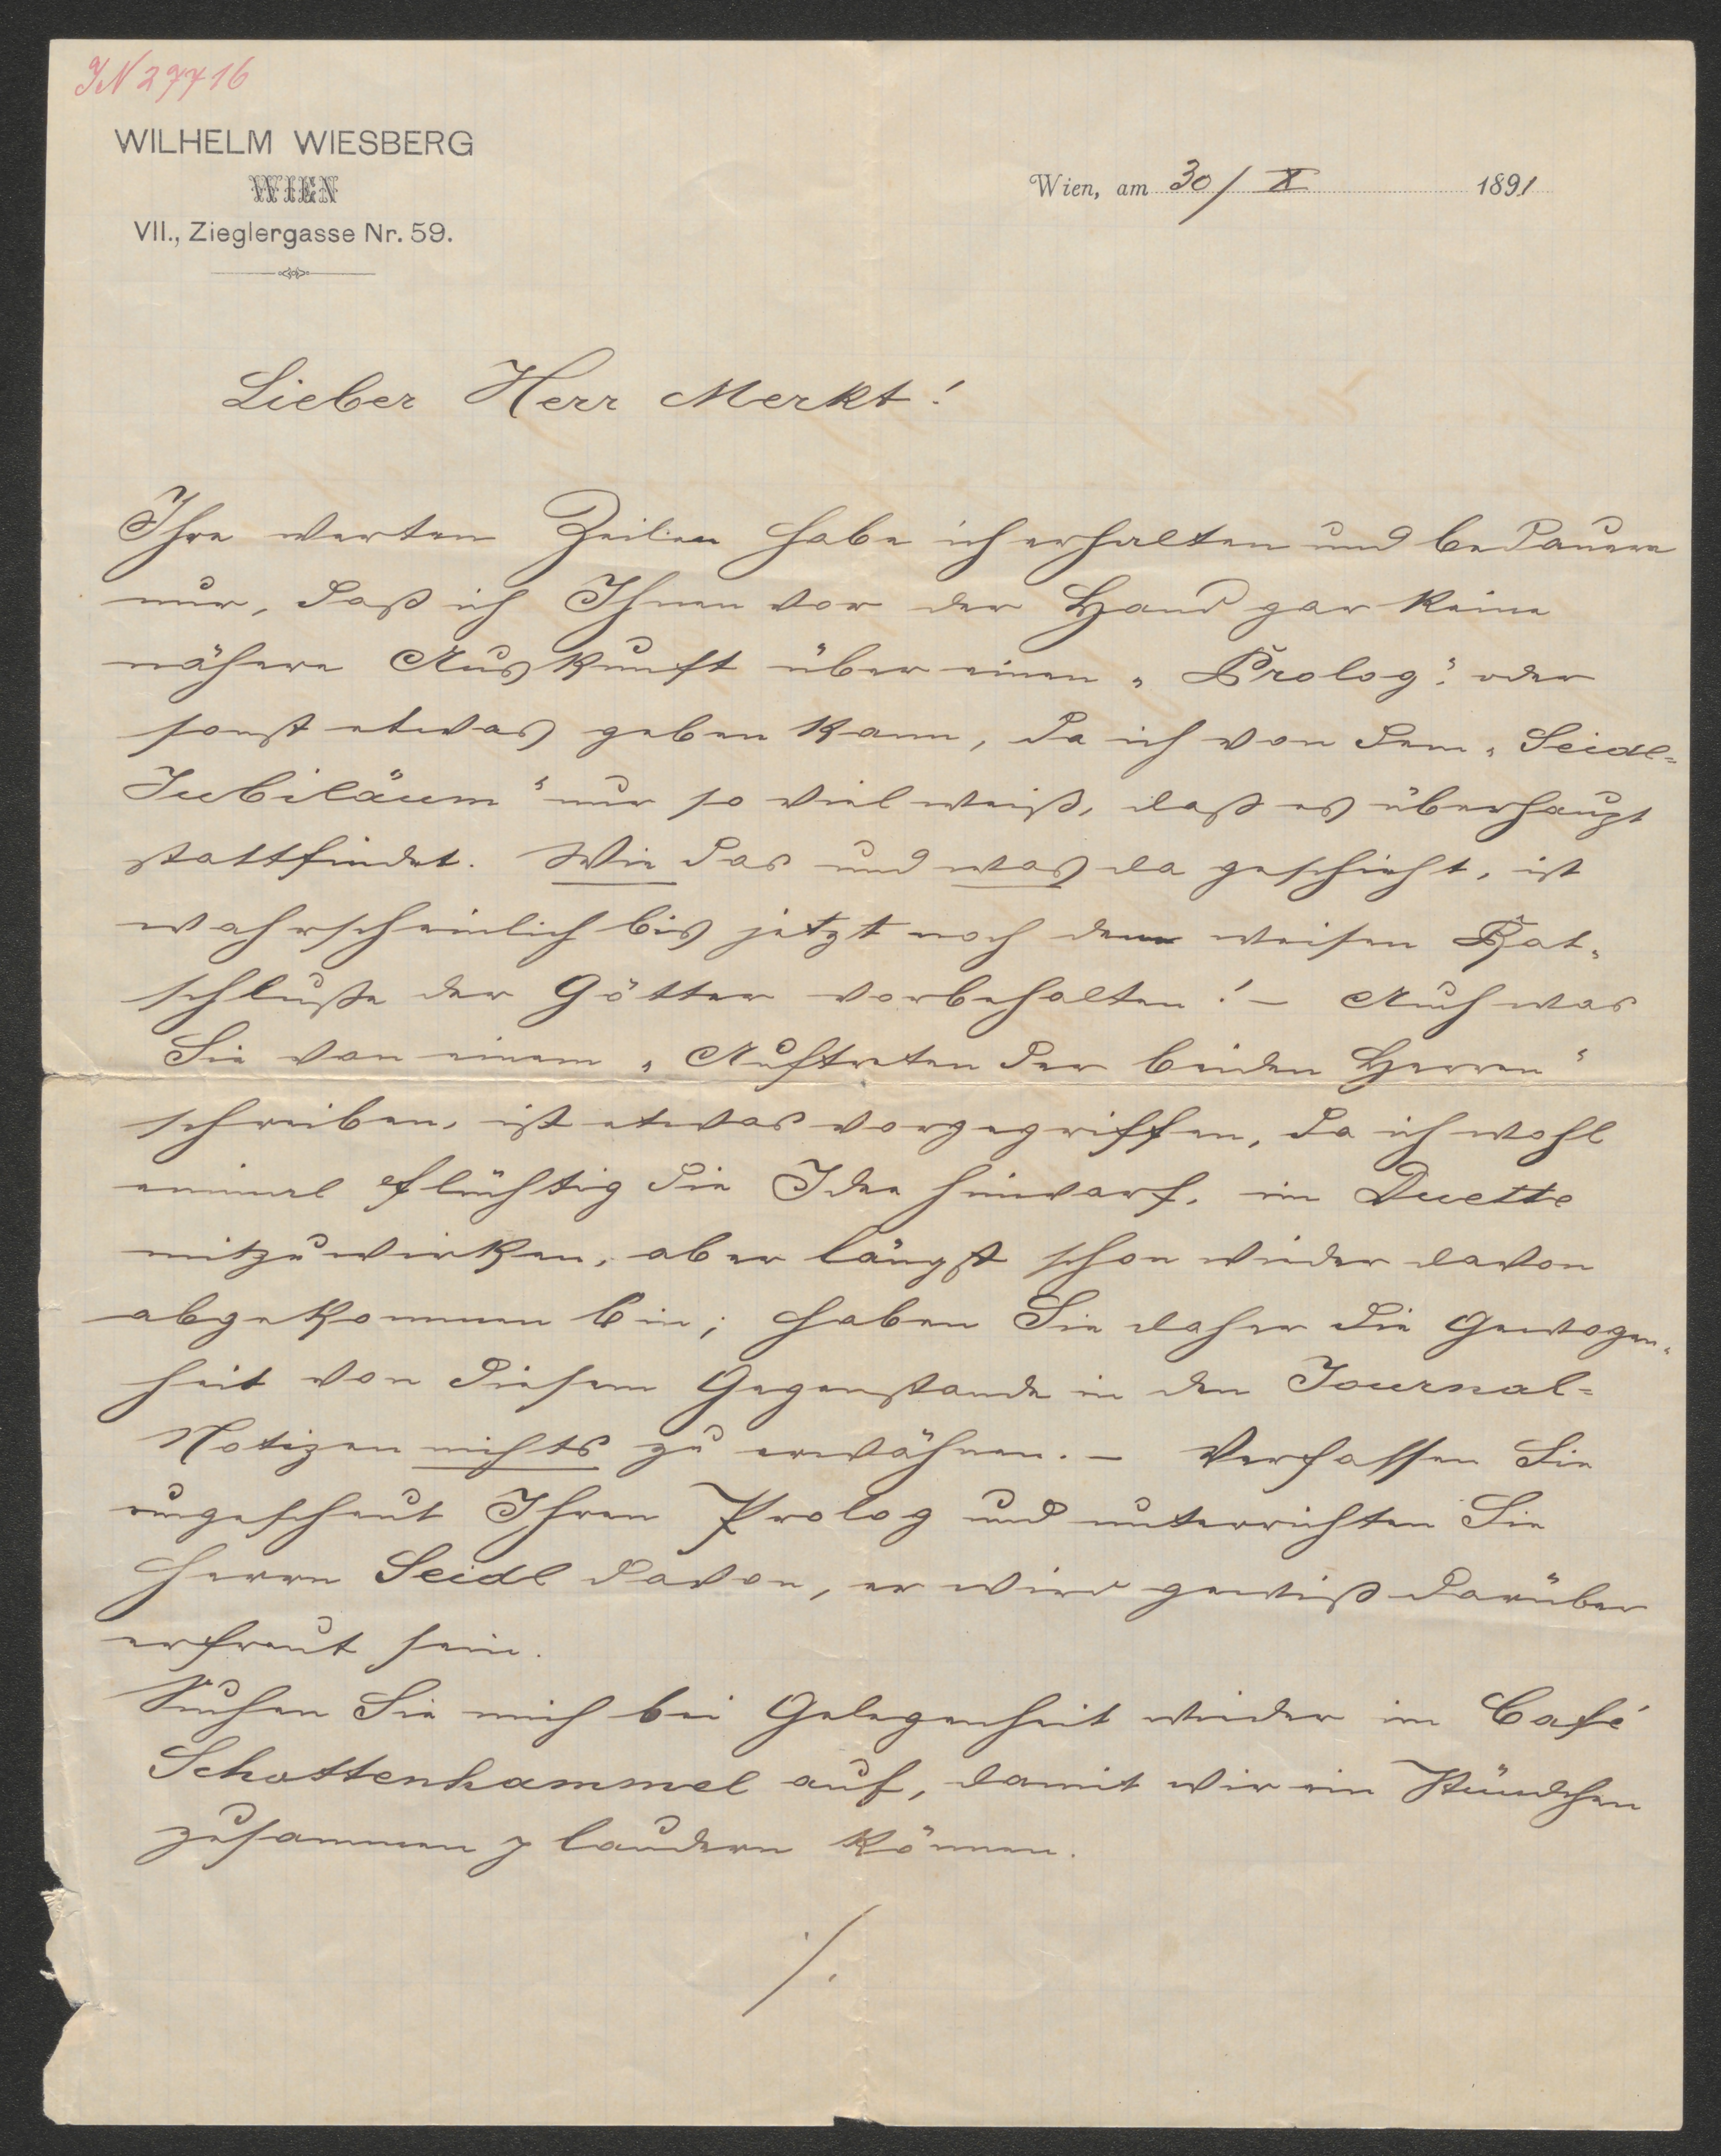 IN 27716
WILHELM WIESBERG
WIEN
VII., Zieglergasse Nr. 59.
Wien, am 30/X 1891
Lieber Herr Merkt!
Ihre werten Zeilen habe ich erhalten und bedauere
nur, daß ich Ihnen vor der Hand gar keine
nähere Auskunft über einen „Prolog“ oder
sonst etwas geben kann, da ich von dem „Seidl-
Jubiläum“ nur so viel weiß, daß es überhaupt
stattfindet. Wie das und was da geschieht, ist
wahrscheinlich bis jetzt noch dem weisen Rat-
schluße der Götter vorbehalten! – Auch was
Sie von einem „Auftreten der beiden Herren“
schreiben, ist etwas vorgegriffen, da ich wohl
einmal flüchtig die Idee hinwarf, im Duette
mitzuwirken, aber längst schon wieder davon
abgekommen bin; haben Sie daher die Gewogen-
heit von diesem Gegenstande in den Journal-
Notizen nichts zu erwähnen. – Verfassen Sie
ungescheut Ihren Prolog und unterrichten Sie
Herrn Seidl davon, er wird gewiß darüber
erfreut sein.
Suchen Sie mich bei Gelegenheit wieder im Café
Schottenhammel auf, damit wir ein Stündchen
zusammen plaudern können.
./.